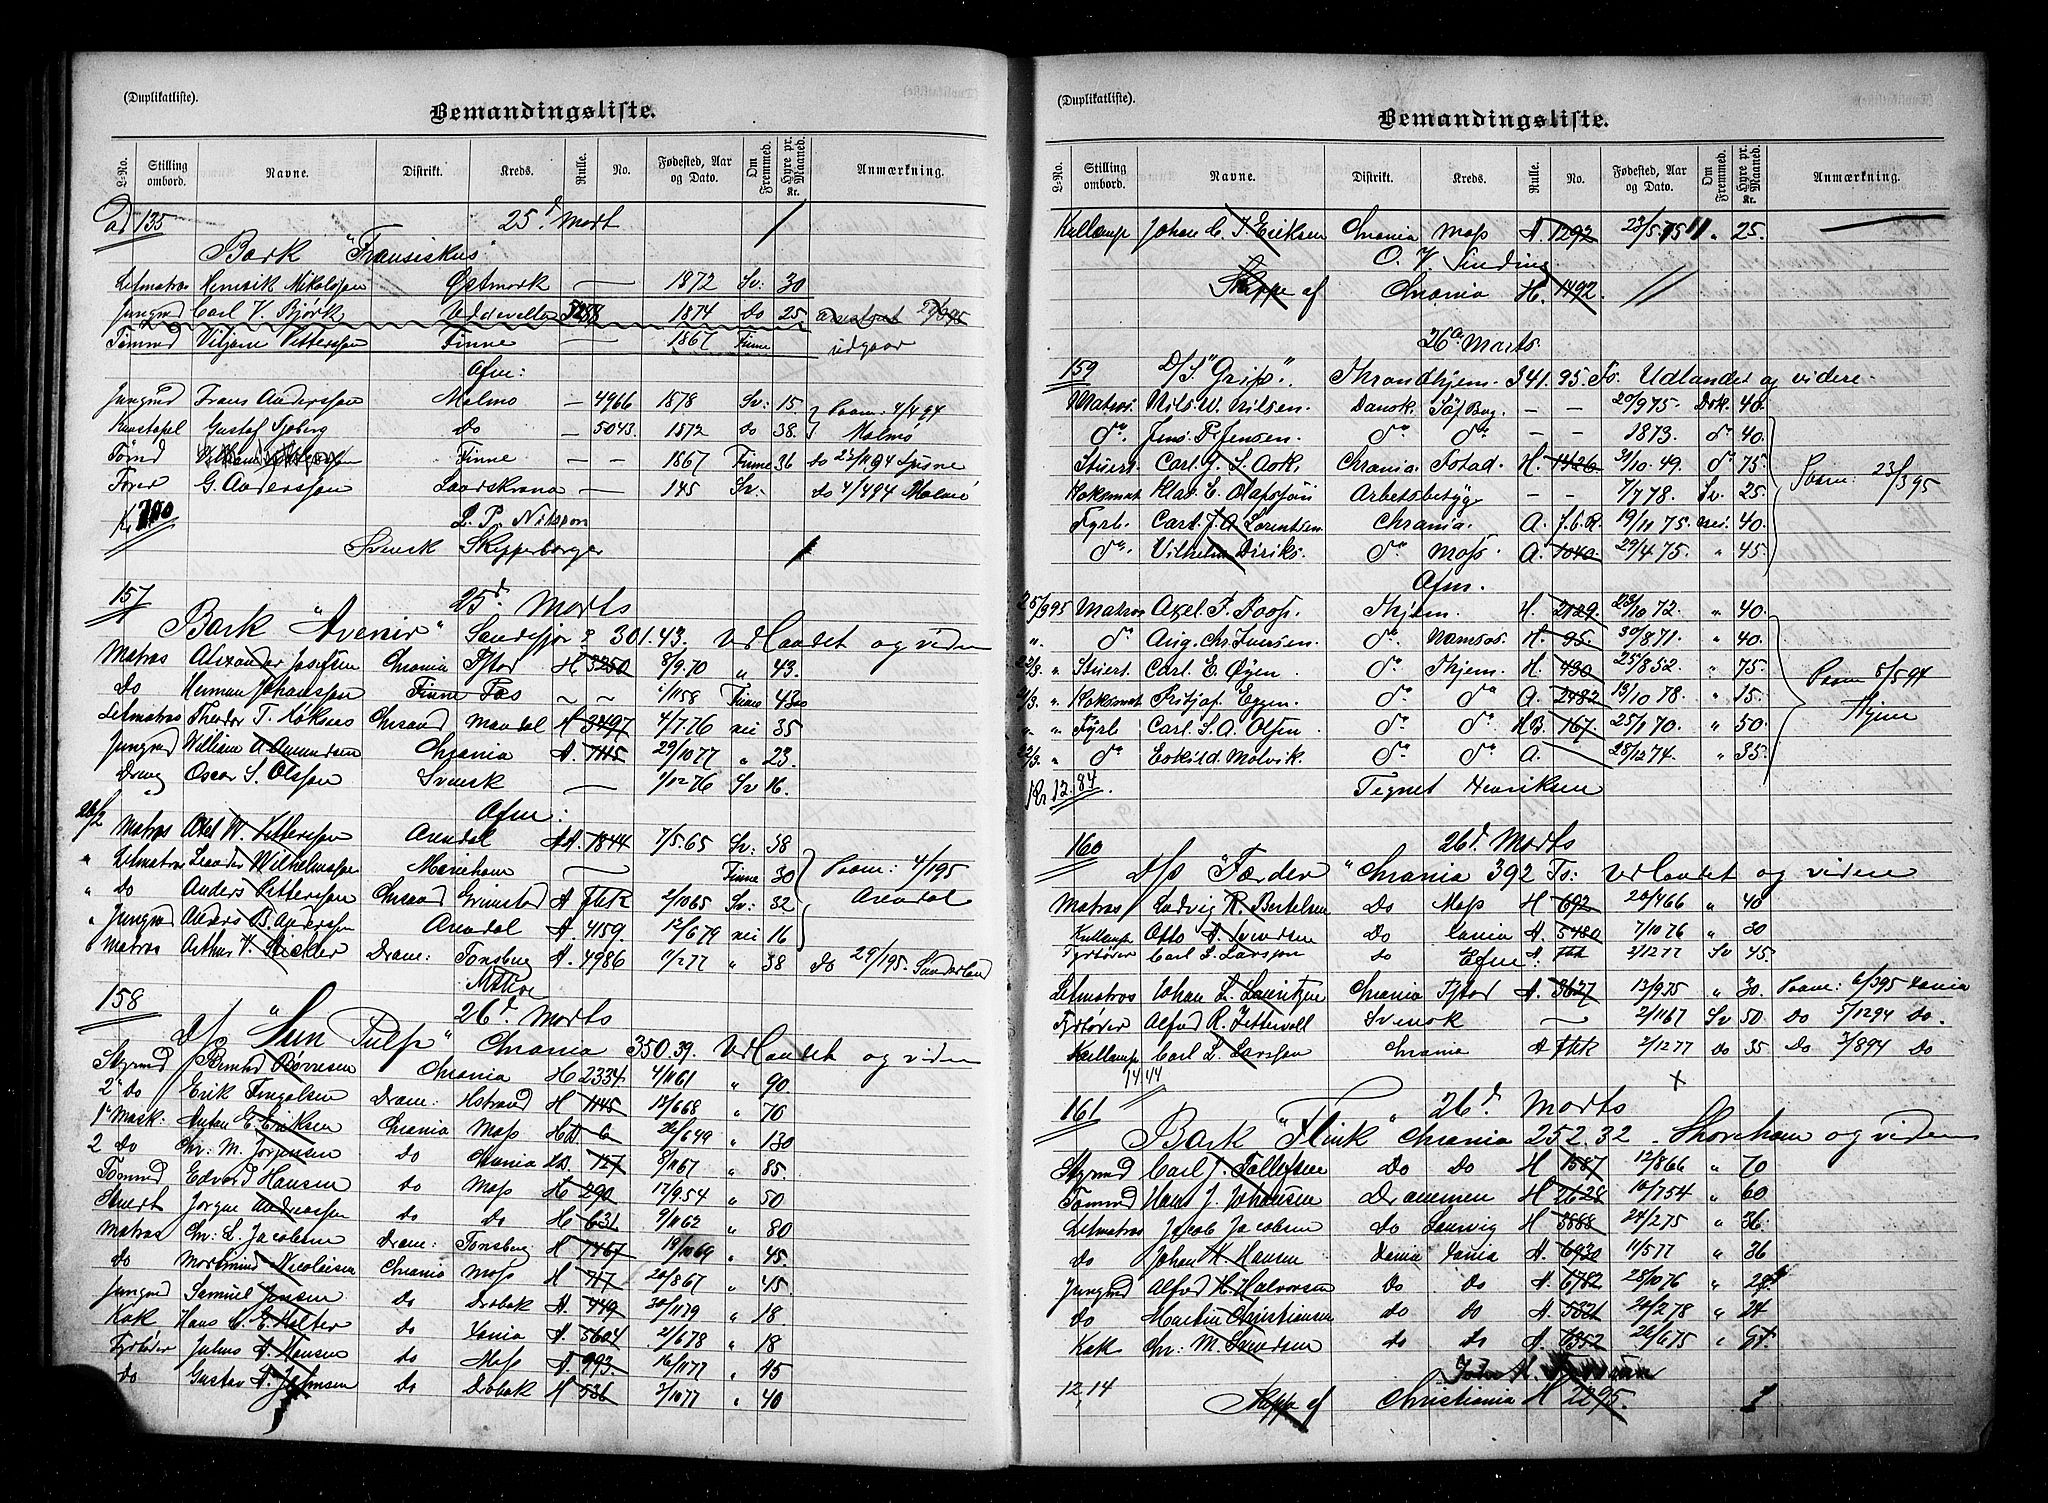 (Duplikatliste).
Bemandingsliste.
L-No. Stilling ombord. Navne. Distrikt. Kreds. Rulle. No. Fødested, Aar og Dato. Om Fremmed. Hyre pr. Maaned. Kr. Anmærkning.
ad 135 25d Mart
Bark "Fransiskus"
Letmatros Henrik Mikalsson Østmark — 1872 Sv: 30
Jungmd Carl V. Bjørk Uddevalla 5258 1874 do 25
Tømmd Viljam Pettersson Finne — 1867 Finne udgaar
Afm:
Jungmd Frans Andersson Malmo — 4966 1878 Sv: 15 Paam: 4/4 94
Konstapel Gustaf Sjøberg do — 5043. 1872 do 38. Malmö
Tømd Finne — 1867 Finne 36 do
Fører G. Andersson Landskrona — 145 Sv: do 4/4 94 Malmö
Kr 700 L. P. Nilsson
Svensk Skipperborger
157 25d Marts
Bark "Avenir" Sandefjor 301.43. Udlandet og videre
Matros Alexander Josefsen Chrania Fstad H 3250 8/9.70 " 43.
Do Herman Johansson Finne Fos — — 1/1158 Finne 43
Letmatros Theodor T. Chrsand Mandal A 3497 4/7.76 nei 35
Jungmd William A Amundsen Chrania A. 7115 29/1077 " 23.
Dreng Oscar S. Olsson Svensk — 1/1276 Sv 16.
Afm:
26/2 Matros Axel W. Pettersson Arendal AA 1844 7/5.65 Sv: 38
" Letmatros Leander Wilhelmsson Mariehavn — Finne 30 Paam: 4/195
" do Anders Pettersson Chrsand Grimstad A FkK 2/1065 Sv: 32 Arendal
" Jungmd Anders B. Andersson Arendal A. 4159. 12/679 nei 16
" Matros Arthur H. Stickler Dram: Tønsberg A. 4986 1/277 " 38 do 29/195. Sunderland
158 26d Marts
D/S "Sun Pulp" Chrania 350.39. Udlandet og videre
Styrmd Bernhd Rønnesen Chrania H 2334. 4/1161 " 90.
2' Do Erik Fingalsen Dram: Hstrand H 1145 12/668 " 70
1' Mask: Anton E. Eriksen Chrania Moss HD 6 26/649 " 130
2 do Chr: M. Jørgensen do Chrania HD. 727 8/1167 " 85.
Tømmd Edvard Hansen do Moss H 290 17/9.54 " 50
Stuert Jørgen Andreassen do do H 631 9/1162 " 80
Matros Chr: L. Jacobsen Dram: Tønsberg H 7467 19/1069 " 45.
do Mortinius Nicolaisen Chrania Moss H 717 20/867 " 45
Jungmd Samuel Jensen do Drøbak A. 449 30/1179 " 18.
Kok Hans C. E. Holter do Xania A. 5604 21/678 " 18
Fyrbøder Julius A. Hansen do Moss A. 993. 16/1177 " 45
do Gustav A. Johnsen do Drøbak H 536 3/1077 " 40
(Duplikatliste).
Bemandingsliste.
L-No. Stilling ombord. Navne. Distrikt. Kreds. Rulle. No. Fødested, Aar og Dato. Om Fremmed. Hyre pr. Maaned. Kr. Anmærkning.
Kullemp Johan C. J. Eriksen Chrania Moss A 1292 23/5 75 " 25.
O. V. Sinding
Skippe af Chrania H. 1492.
26de Marts.
159 D/S. "Grip". Throndhjem. 341.95. To. Udlandet og videre.
Matros. Nils W. Nilsen. Dansk. — — 20/975. Dsk. 40.
do. Jens P. Jensen. do do — — 1873. do 40.
Stuert. Carl J. S. Aok. Chrania. Fstad. H. 1426. 31/10.49. do 75. Paam: 23/395
Koksmat Klas E. Olafsson Arbetsbetyg — — 7/778. Sv. 25.
Fyrb. Carl J. A. Lorentsen. Chrania. A. F.C.R. 19/11 75. nei. 40.
do. Vilhelm Diriks. do Moss. A. 1040. 29/4.75. " 45.
Afm.
25/395 Matros Axel P. Roos. Thjem. H. 2129. 23/1072. " 40.
" do Aug. Chr. Iversen. do Namsos. H. 95. 30/871. " 40.
22/3. " Stuert. Carl E. Øyen. do Thjem. H. 430 25/852. " 75. Paam 5/594
" Koksmat Fritjof Eggen. do do A. 2482 13/10 78. " 15. Thjem
" " Fyrb. Carl S. A. Olsen do do HB. 167. 25/170. " 50.
22/3. " do Eskild Molvik. do do A. — 28/1274. " 35.
Kr 12.84. Tegnet Henriksen
160 26d Marts
D/S "Færder" Chrania 392 To: Udlandet og videre
Matros Ludvig R. Bertelsen Do Moss H 692 20/466 " 40
Kullemp Otto A. Svendsen Do Xania A. 5480 7/1076 " 30
Fyrbøder Carl L. Larsson do A. Fkk 2/1277 Sv 45.
Afm:
Letmatros Johan L. Lauritzen Chrania Fstad A. 3627 13/9.75 " 30. Paam: 6/395 Xania
Fyrbøder Alfred R. Zettervall Svensk — 2/1167 Sv 50. Do 5/1294 do.
Kullemp Carl L. Larsson Chrania A Fkk 2/1277 do 35 Do 3/894 Do
14.44
161 26d. Marts
Bark "Flink" Chrania 252.32 Shoreham og videre
Styrmd Carl J. Tollefsen Do Do H 1587 12/866 " 70
Tømmd Hans J. Johansen Drammen H 2628 10/754 " 60
Letmatros Jacob Jacobsen do Laurvig H 3888 24/275 " 36.
Do Johan H. Hansen Xania Xania A. 6930 11/577 " 36
Jungmd Alfred H. Halvorsen Do Do A. 6782 28/1076 " 28
do Martin Christiansen do do A. 5321 20/278 " 24
Kok Chr: M. Svendsen do do A. 6352 26/675 "
12,14 Skippe af Christiania H 2295.